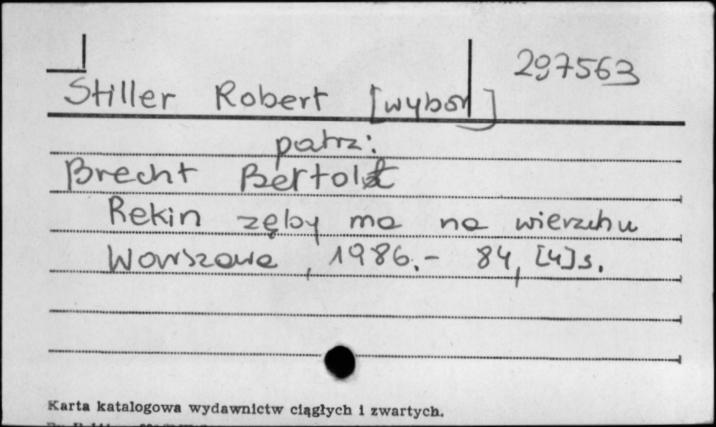 297563
Stiller Robert [wybór]
patrz:
Brecht Bertolt
Rekin zęby ma na wierzchu
Warszawa, 1986.- 84, [4] s.
Karta katalogowa wydawnictw ciągłych i zwartych.